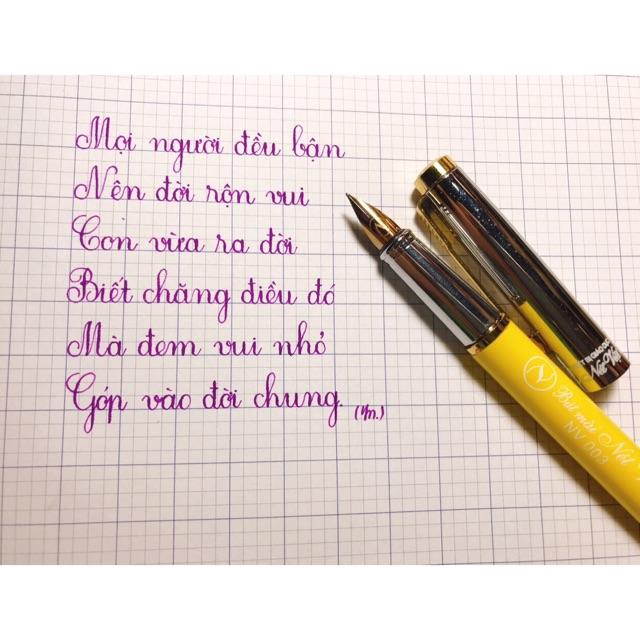 Mọi người đều bận
Nên đời rộn vui
Con vừa ra đời
Biết chăng điều đó
Mà đem vui nhỏ
Góp vào đời chung.
Bút mài Nét
NV 003